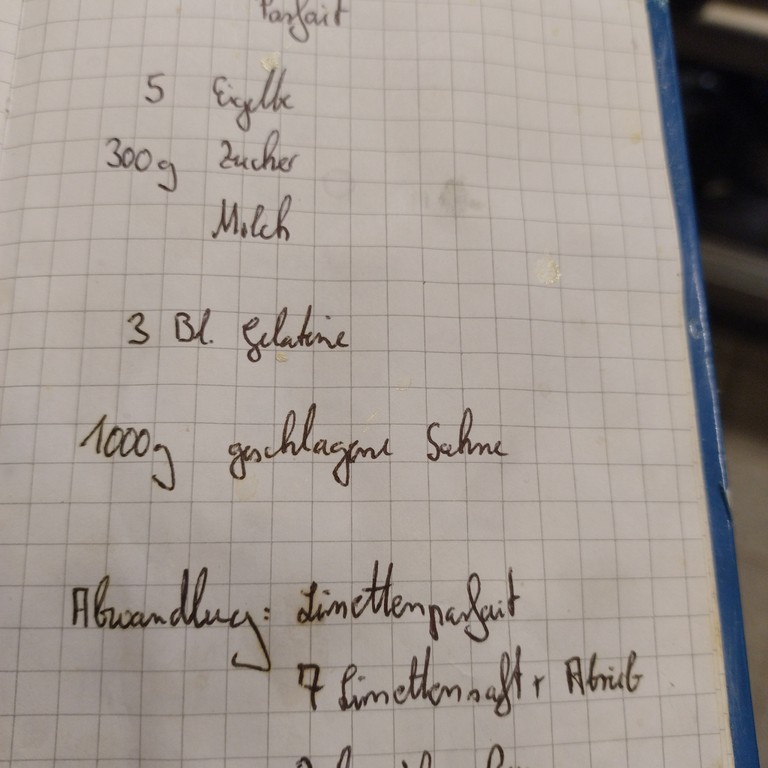 Parfait
5 Eigelbe
300g Zucker
Milch
3 Bl. Gelatine
1000g geschlagene Sahne
Abwandlug: Limettenparfait
7 Limettensaft + Abrieb